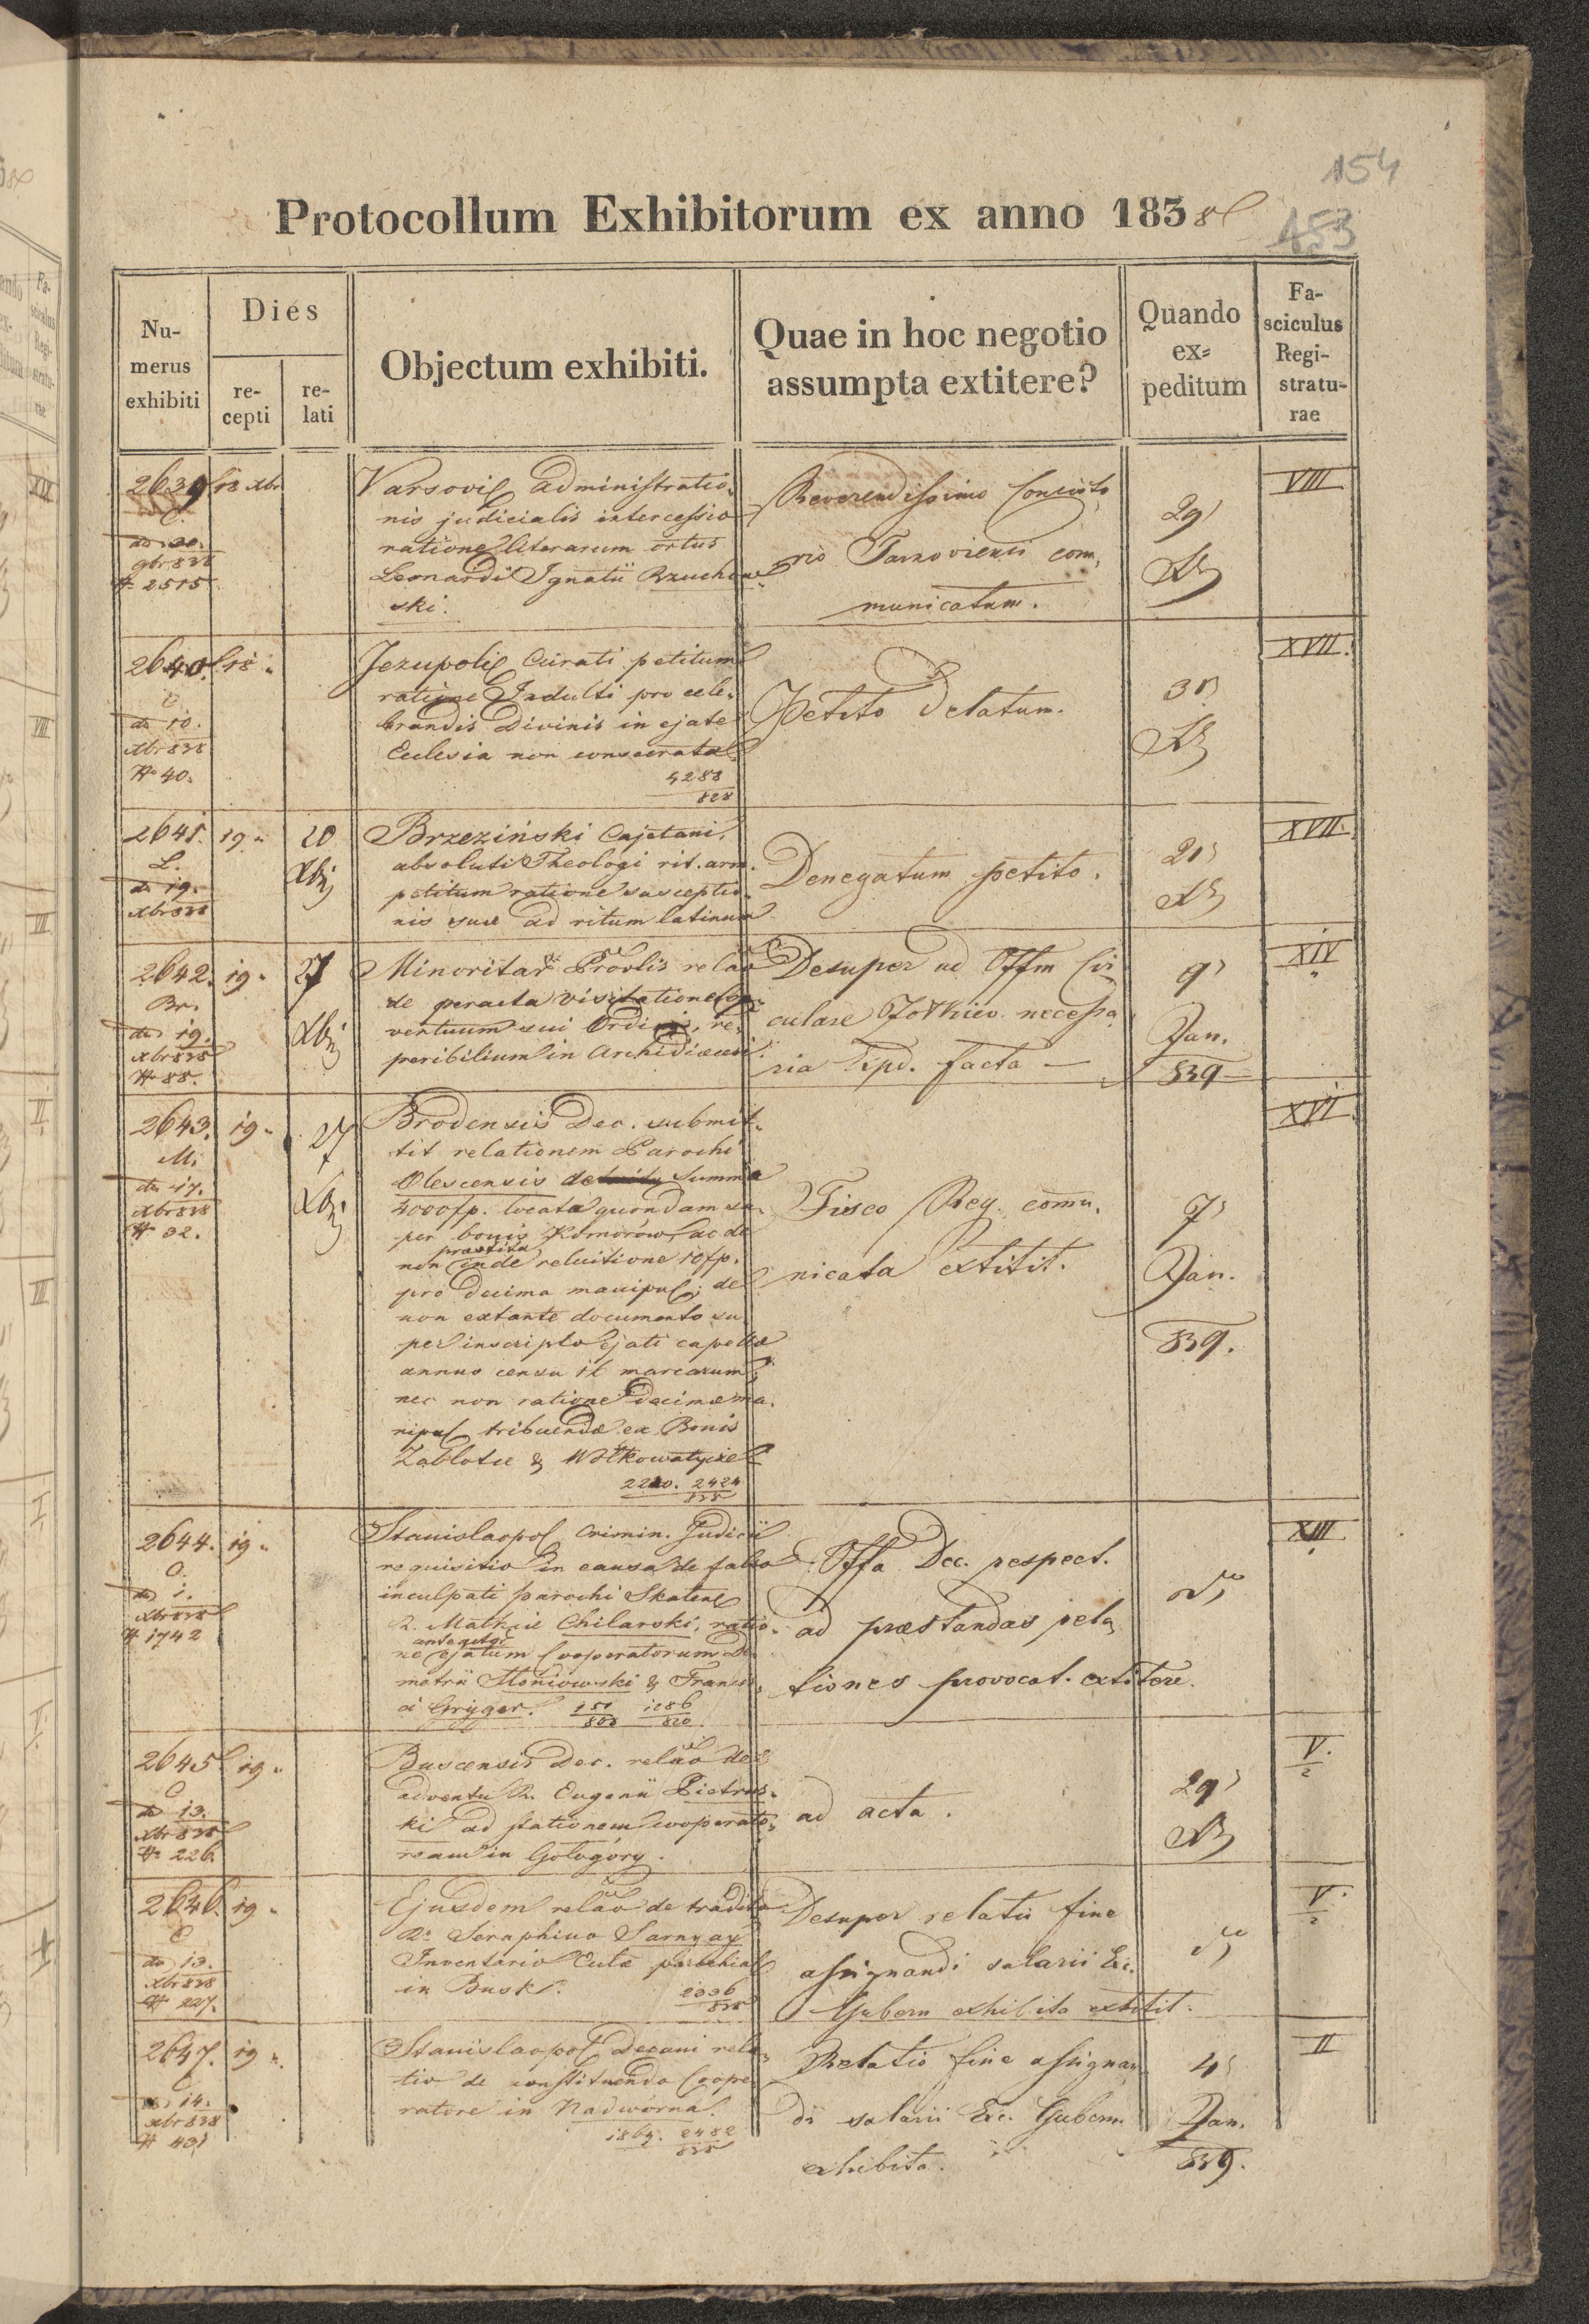 154
153
Protocollum Exhibitorum ex anno 1838
Numerus exhibiti
Dies
recepti
relati
Objectum exhibiti.
Quae in hoc negotio assumpta extitere?
Quando ex=peditum
Fasciculus Registraturae
2639
18 xbr
C.
20.
9br 838
# 2515
Varsovie Administratio,
nis judicialis intercessio
ratione literarum ortus
Leonardi Ignatii Rzuchow
ski.
Reverendissimo Consisto
rio Tarnoviensi com,
municatum.
29
Xb
VIII
2640.
18 "
C
do 10.
xbr 838
# 40.
Jezupolis Curati petitum
ratione Indulti pro cele,
brandis Divinis in ejate
Ecclesia non consecrata
4288
828
Petito delatum.
30
Xb
XVII.
2641.
19 "
20
Xbr
L.
do 19.
xbr 838
Brzeziński Cajetani,
absoluti Theologi rit. arm.
petitum ratione susceptio,
nis suae ad ritum latinum
Denegatum petito.
20
Xb
XVII.
2642.
19 "
27
Xbr
Br.
do 19.
xbr 838
# 88.
Minoritar Provlis relao
de peracta visitatione Con,
ventuum sui Ordinis, re,
peribilium in Archidiaecesi.
Desuper ad Offm Cir
culare Zołkiev. necessa
ria Expd. facta —
9
Jan.
839
XIV
2643.
19 "
27
Xbr
M.
do 17.
xbr 838
# 32.
Brodensis Dec. submit,
tit relationem Parochi
Olescensis de summa
4000 fp. locata quondam su,
per bonis Komorów, ac de
praestita
non inde reluitione 10 fp.
pro decima manipul; de
non extante documento su
per inscripto ejati capellae
annuo censu 12 marcarum;
nec non ratione decimae ma,
nipul tribuendae ex Bonis
Zabłotce & Wołkowatycze
2220. 2424
838
Fisco Reg. comu,
nicata extitit.
7
Jan.
839.
XVI.
2644.
19 "
O.
do 1.
xbr 838
# 1742
Stanislaopol Crimin. Judicii
requisitio in causa de falso
inculpati parochi Skatens
R. Mathiae Chilarski, ratio,
ne ejatum Cooperatorum De,
metrii Słoniowski & Francis,
ci Gryger. 151 1286
808 820
Offa Dec. respect.
ad praestandas rela
tiones provocat. extitere.
XIII
2645
19 "
C
do 13.
xbr 838
# 226.
Buscensis Dec. relao de
adventu R. Eugenii Pietrus,
ki ad stationem cooperato,
ream in Gołogóry.
ad acta.
29
Xb
V.
2
2646.
19 "
C
do 13.
xbr 838
# 227.
Ejusdem relao de tradito
R. Seraphino Sarnyay
Inventario Eccle parochial
in Busk.
2336
838
Desuper relatio fine
assignandi salarii Exc.
Gubern exhibita extitit.
V.
2
2647.
19 ".
C
do 14.
xbr 838
# 431
Stanislaopol Decani rela,
tio de constituendo Coope,
ratore in Nadworna.
1869. 2482
838
Relatio fine assignan
di salarii Exc. Gubern.
exhibita.
4
Jan.
839.
II